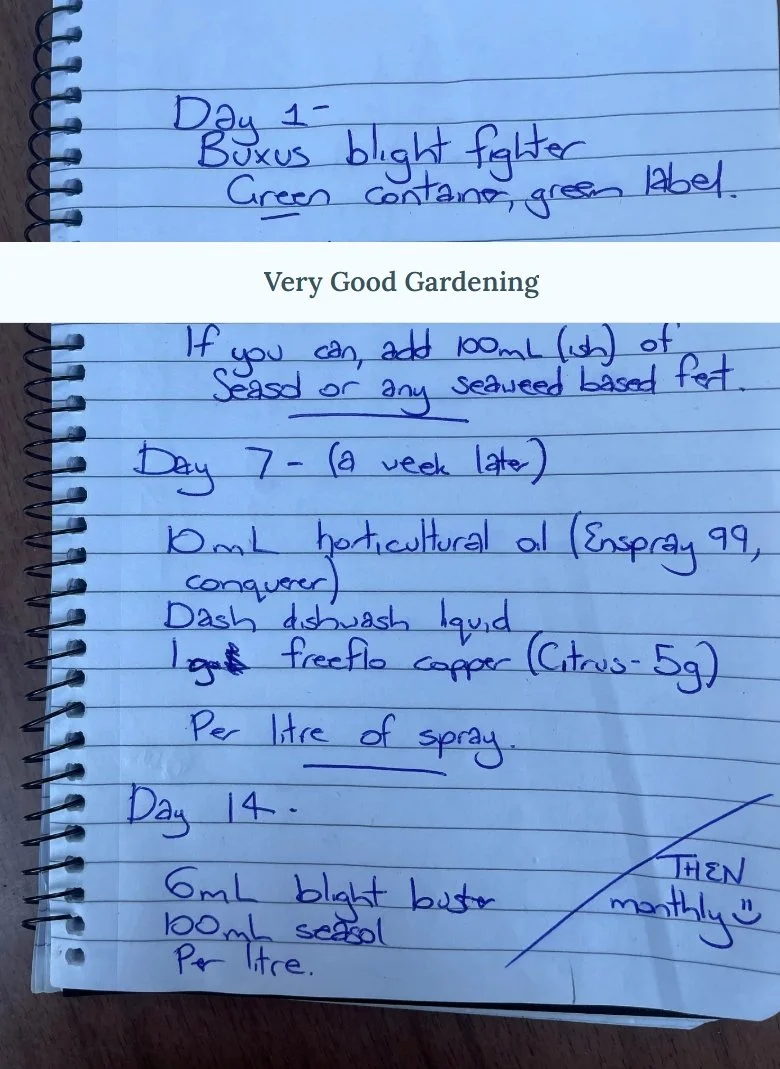 Day 1-
Buxus blight fighter
Green container, green label.
Very Good Gardening
If you can, add 100mL (ish) of
Seasol or any seaweed based fert.
Day 7 - (a week later)
10mL horticultural oil (Enspray 99,
conquerer)
Dash dishwash liquid
1g freeflo copper (Citrus - 5g)
Per litre of spray.
Day 14.
6mL blight buster
100mL seasol
Per litre.
THEN
monthly